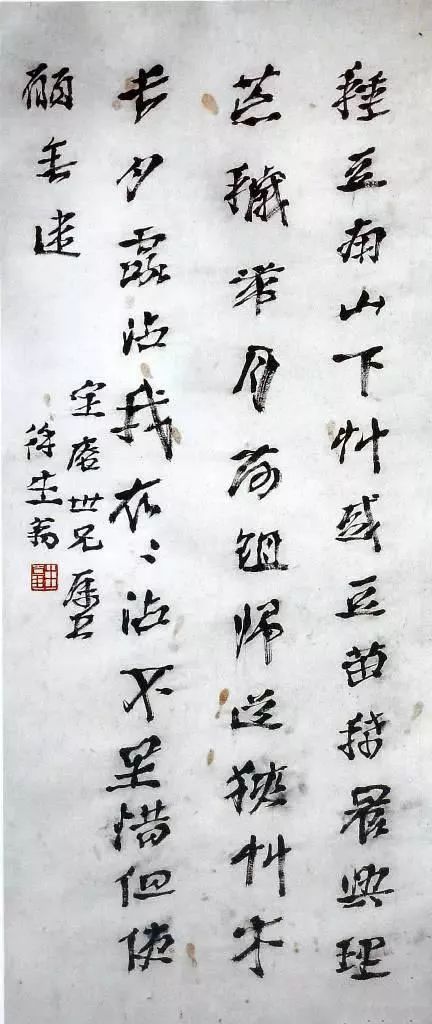 種豆南山下艸盛豆苗稀晨興理
荒穢帶月荷鉏歸道狹艸木
長夕露沾我衣〻沾不足惜但使
願無違
定庵世兄屬書
徐生翁